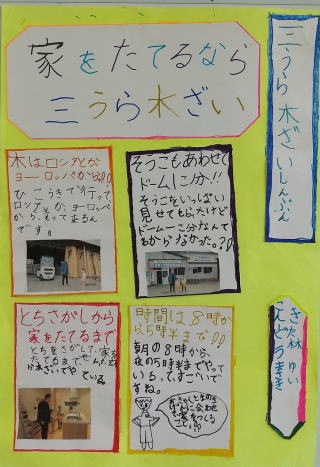 家をたてるなら
三うら木ざい
三うら木ざいしんぶん
木はロシアとか
ヨーロッパから!!
ひこうきで行って
ロシアとか、ヨーロッパ
から、もってまるん
です。
そうこもあわせて
ドーム1こ分!!
そうこをいっぱい
見せてもらったけど
ドーム一こ分なんて
わからなかった。?!
とちさがしから
家をたてるまで
とちをさがして、家を
たてるまで、ぜんぶ三うら
が木ざいでや
ている。
時間は、8時か
ら5時半まで!!
朝の8時から、
夜の5時半までやって
いるって、すごいで
すね。